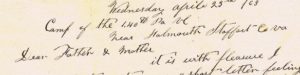 Wednesday April 22nd / 63
Camp of the 140th Pa Vl
near Falmouth Stafford Co va
Dear Father & Mother
it is with pleasure I
short letter feeling